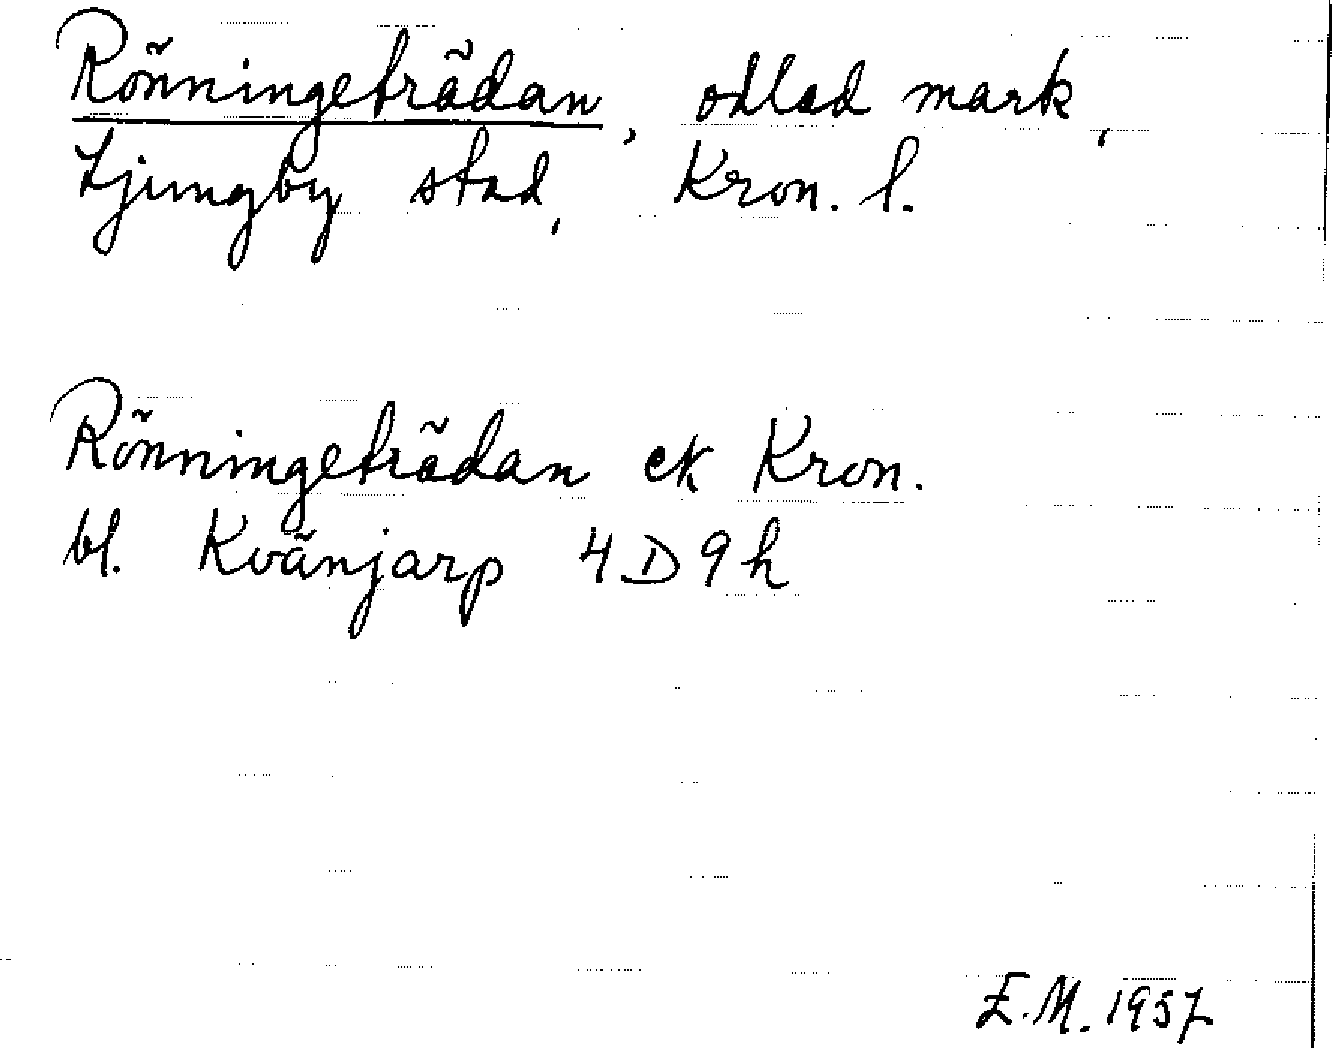 Rönningeträdan, odlad mark,
Ljungby stad, Kron. l.
Rönningeträdan ek Kron.
bl. Kvänjarp 4D9h
E.M. 1957